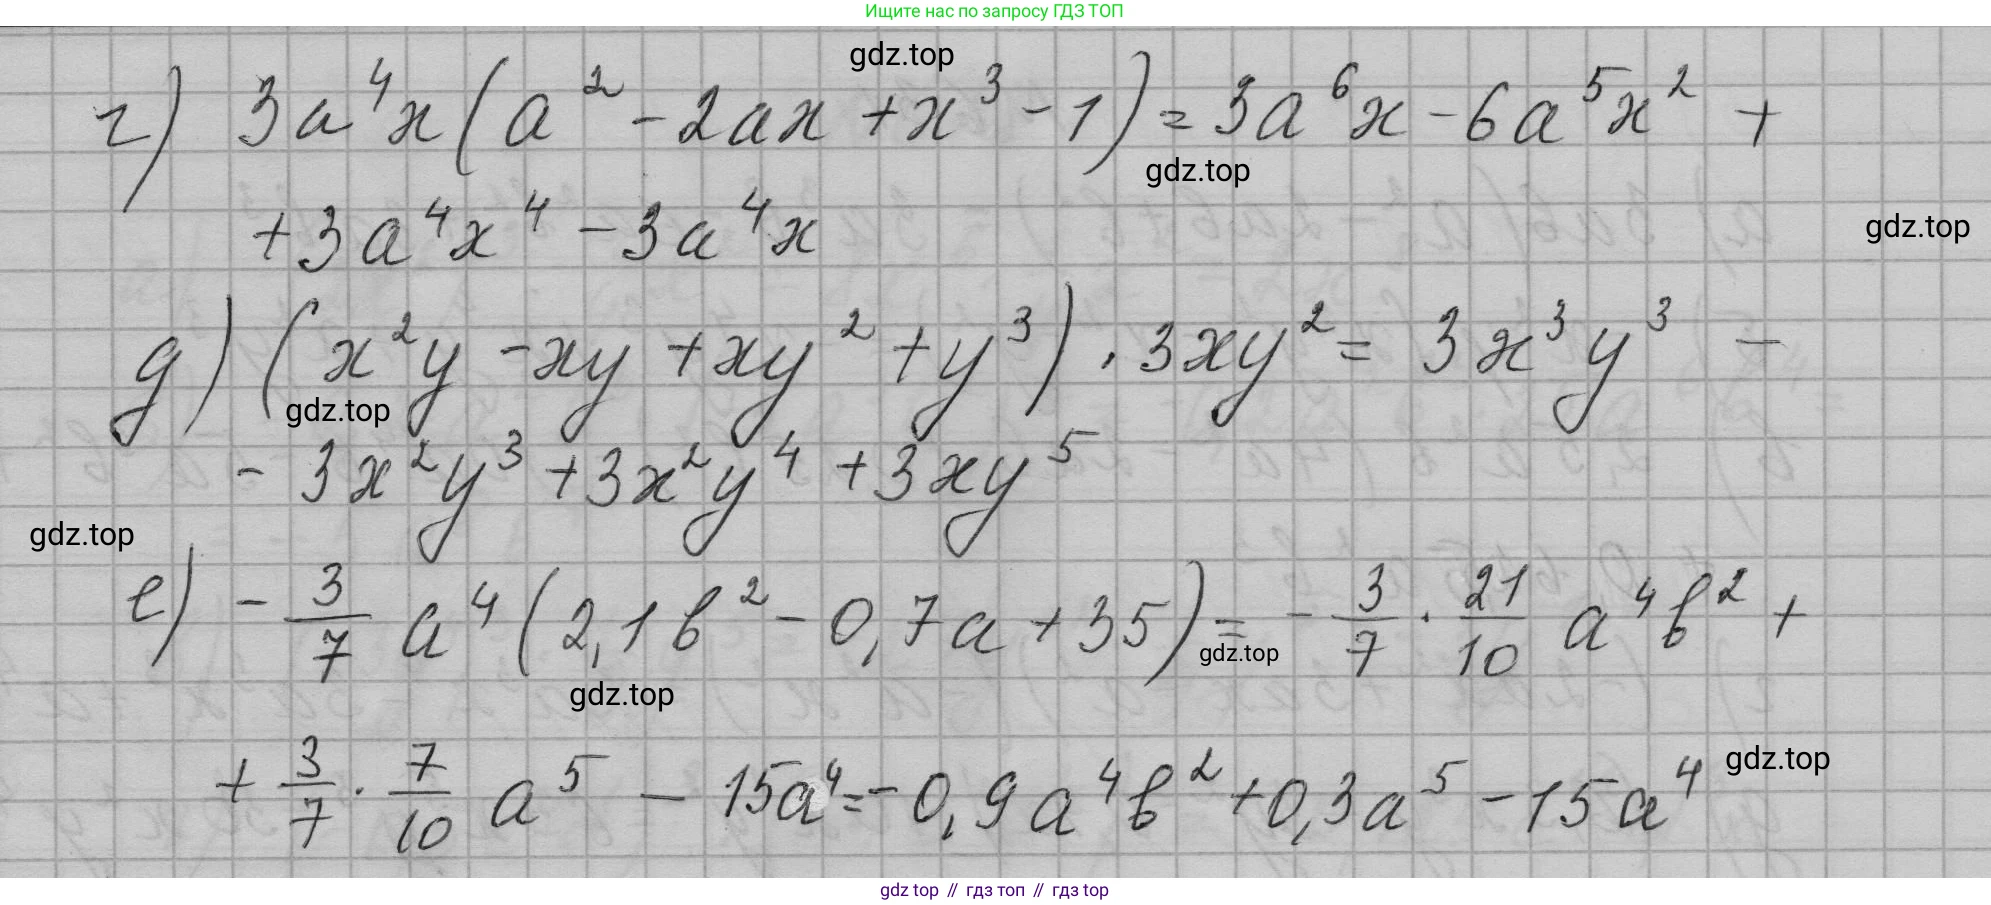 Ищите нас по запросу ГДЗ ТОП
gdz.top
г) 3a⁴x(a² - 2ax + x³ - 1) = 3a⁶x - 6a⁵x² +
gdz.top
+ 3a⁴x⁴ - 3a⁴x
gdz.top
д) (x²y - xy + xy² + y³) · 3xy² = 3x³y³ -
gdz.top
- 3x²y³ + 3x²y⁴ + 3xy⁵
gdz.top
е) - 3/7 a⁴(2,1в² - 0,7a + 35) = - 3/7 · 21/10 a⁴в² +
gdz.top
gdz.top
+ 3/7 · 7/10 a⁵ - 15a⁴ = - 0,9a⁴в² + 0,3a⁵ - 15a⁴
gdz.top
gdz top // гдз топ // гдз top